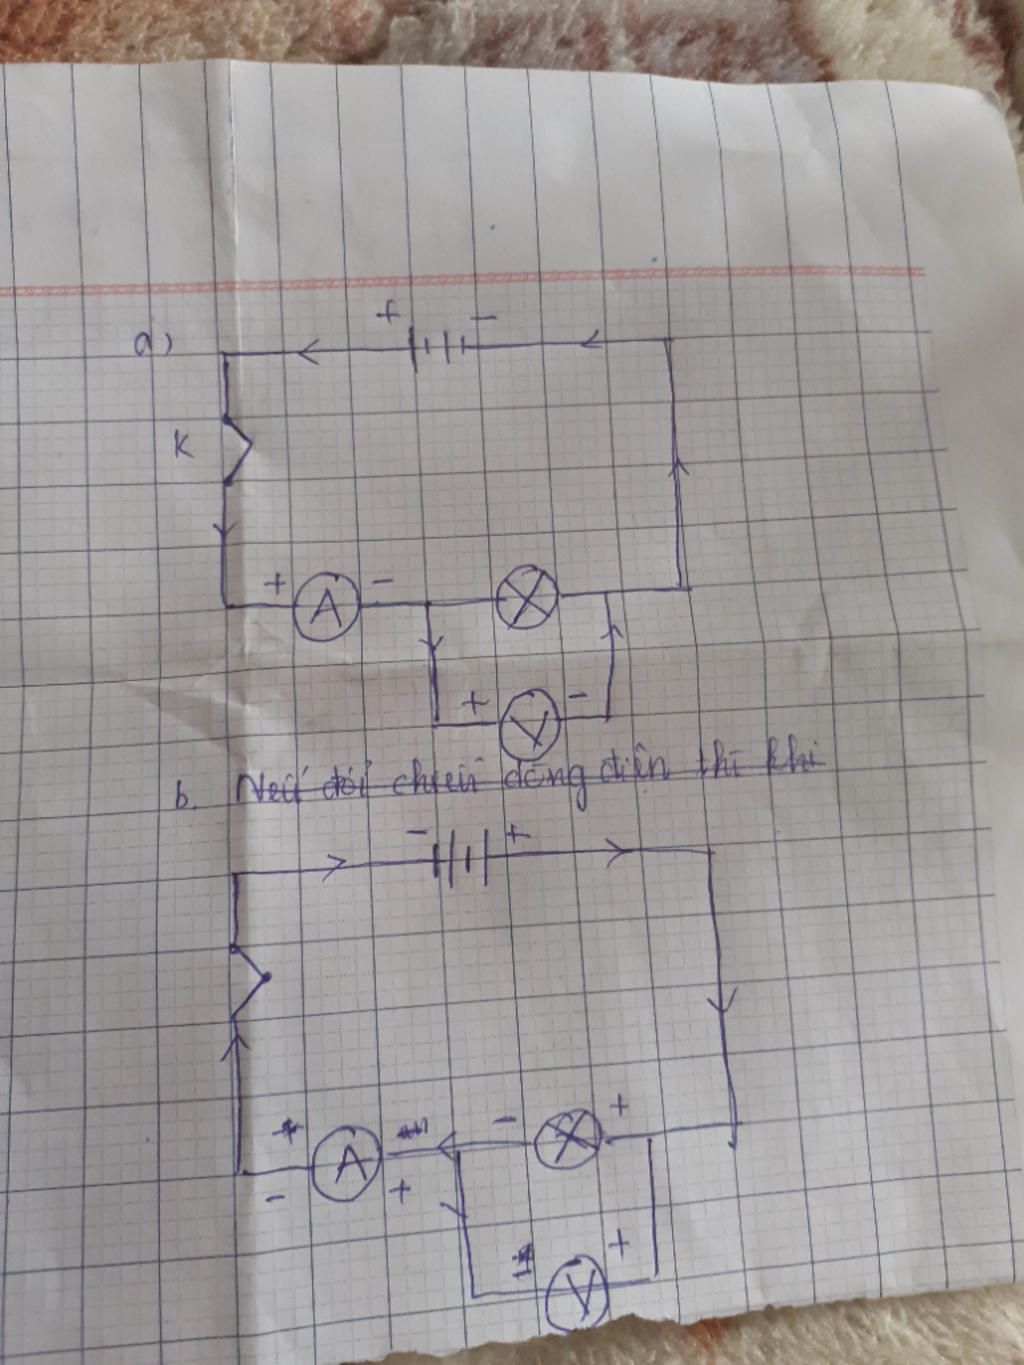 a)
+ -
K
+ A -
+ V -
b. Nếu đổi chiều dòng điện thì khi
- +
- +
A
- +
+
V